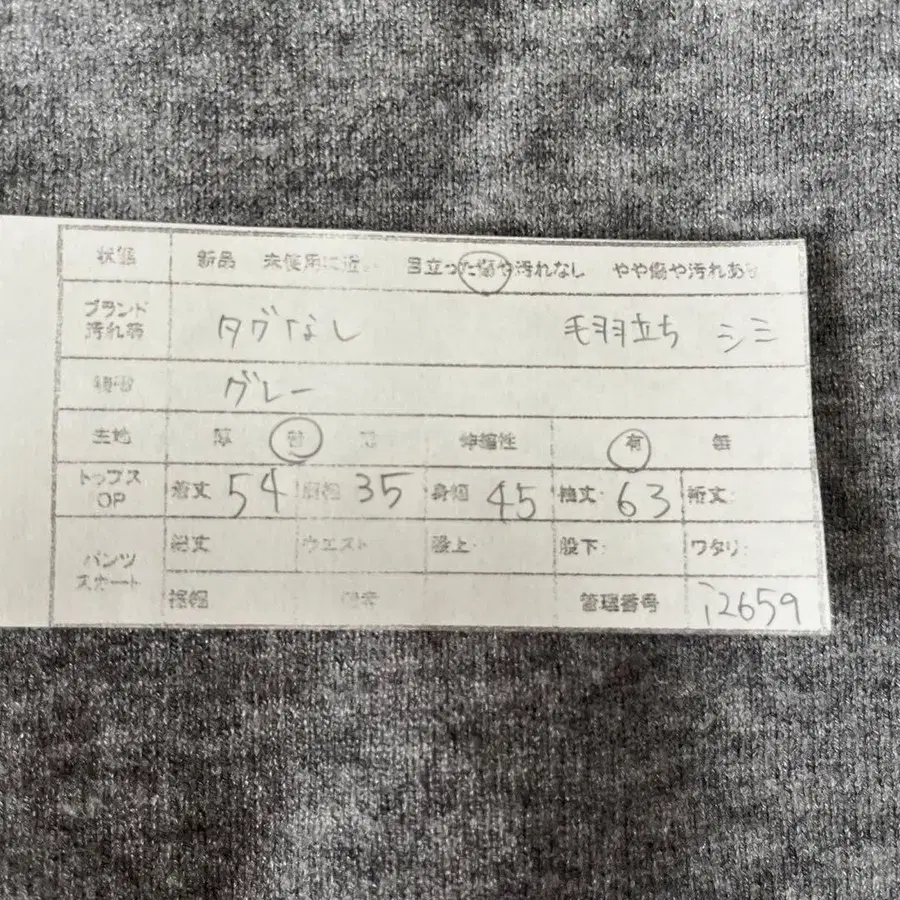 状態 新品 未使用に近い 目立った傷や汚れなし やや傷や汚れあり
ブランド 汚れ等 タグなし 毛羽立ち シミ
グレー
生地 厚 普 伸縮性 有 無
トップス OP 着丈 54 肩幅 35 身幅 45 袖丈: 63 裄丈:
パンツ スカート 総丈 ウエスト 股上: 股下: ワタリ:
裾幅 管理番号 i2659